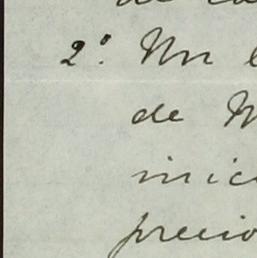 de
2º. Un
de
inici
precio